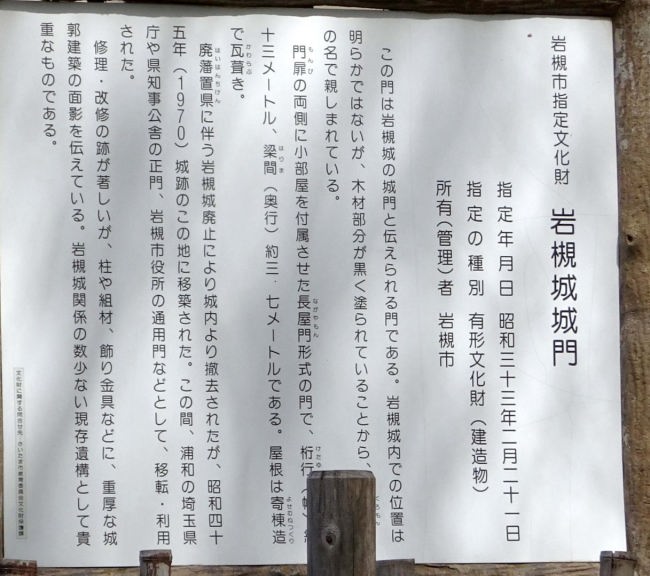 岩槻市指定文化財　岩槻城城門
指定年月日　昭和三十三年二月二十一日
指定の種別　有形文化財（建造物）
所有（管理）者　岩槻市
この門は岩槻城の城門と伝えられる門である。岩槻城内での位置は
明らかではないが、木材部分が黒く塗られていることから、
の名で親しまれている。
門扉の両側に小部屋を付属させた長屋門形式の門で、桁行（幅）約
十三メートル、梁間（奥行）約三．七メートルである。屋根は寄棟造
で瓦葺き。
廃藩置県に伴う岩槻城廃止により城内より撤去されたが、昭和四十
五年（1970）城跡のこの地に移築された。この間、浦和の埼玉県
庁や県知事公舎の正門、岩槻市役所の通用門などとして、移転・利用
された。
修理・改修の跡が著しいが、柱や組材、飾り金具などに、重厚な城
郭建築の面影を伝えている。岩槻城関係の数少ない現存遺構として貴
重なものである。
文化財に関する問合せ先：さいたま市教育委員会文化財保護課